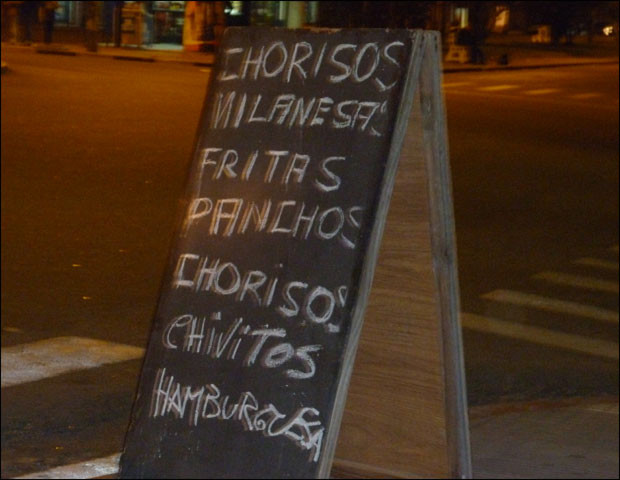 CHORISOS
MILANESAS
FRITAS
PANCHOS
CHORISOS
CHiViTOS
HAMBURGUESA